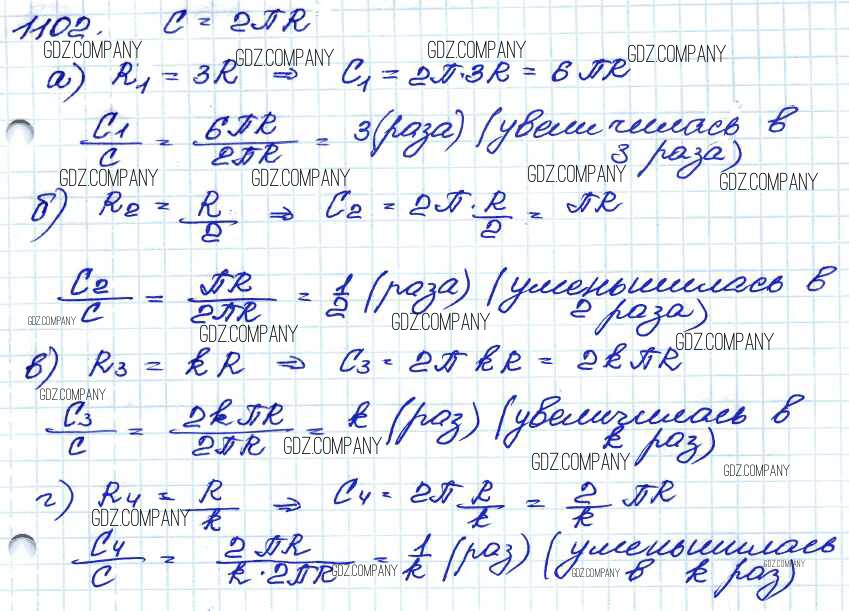 1102. C = 2πR
GDZ.COMPANY GDZ.COMPANY GDZ.COMPANY GDZ.COMPANY
а) R₁ = 3R ⇒ C₁ = 2π·3R = 6πR
C₁/C = 6πR/2πR = 3(раза) (увеличилась в
3 раза)
GDZ.COMPANY GDZ.COMPANY GDZ.COMPANY GDZ.COMPANY
б) R₂ = R/2 ⇒ C₂ = 2π·R/2 = πR
C₂/C = πR/2πR = 1/2 (раза) (уменьшилась в
2 раза)
GDZ.COMPANY GDZ.COMPANY GDZ.COMPANY GDZ.COMPANY
в) R₃ = kR ⇒ C₃ = 2πkR = 2kπR
GDZ.COMPANY
C₃/C = 2kπR/2πR = k (раз) (увеличилась в
k раз)
GDZ.COMPANY GDZ.COMPANY GDZ.COMPANY
г) R₄ = R/k ⇒ C₄ = 2π R/k = 2/k πR
GDZ.COMPANY
C₄/C = 2πR/k·2πR = 1/k (раз) (уменьшилась
в k раз)
GDZ.COMPANY GDZ.COMPANY GDZ.COMPANY